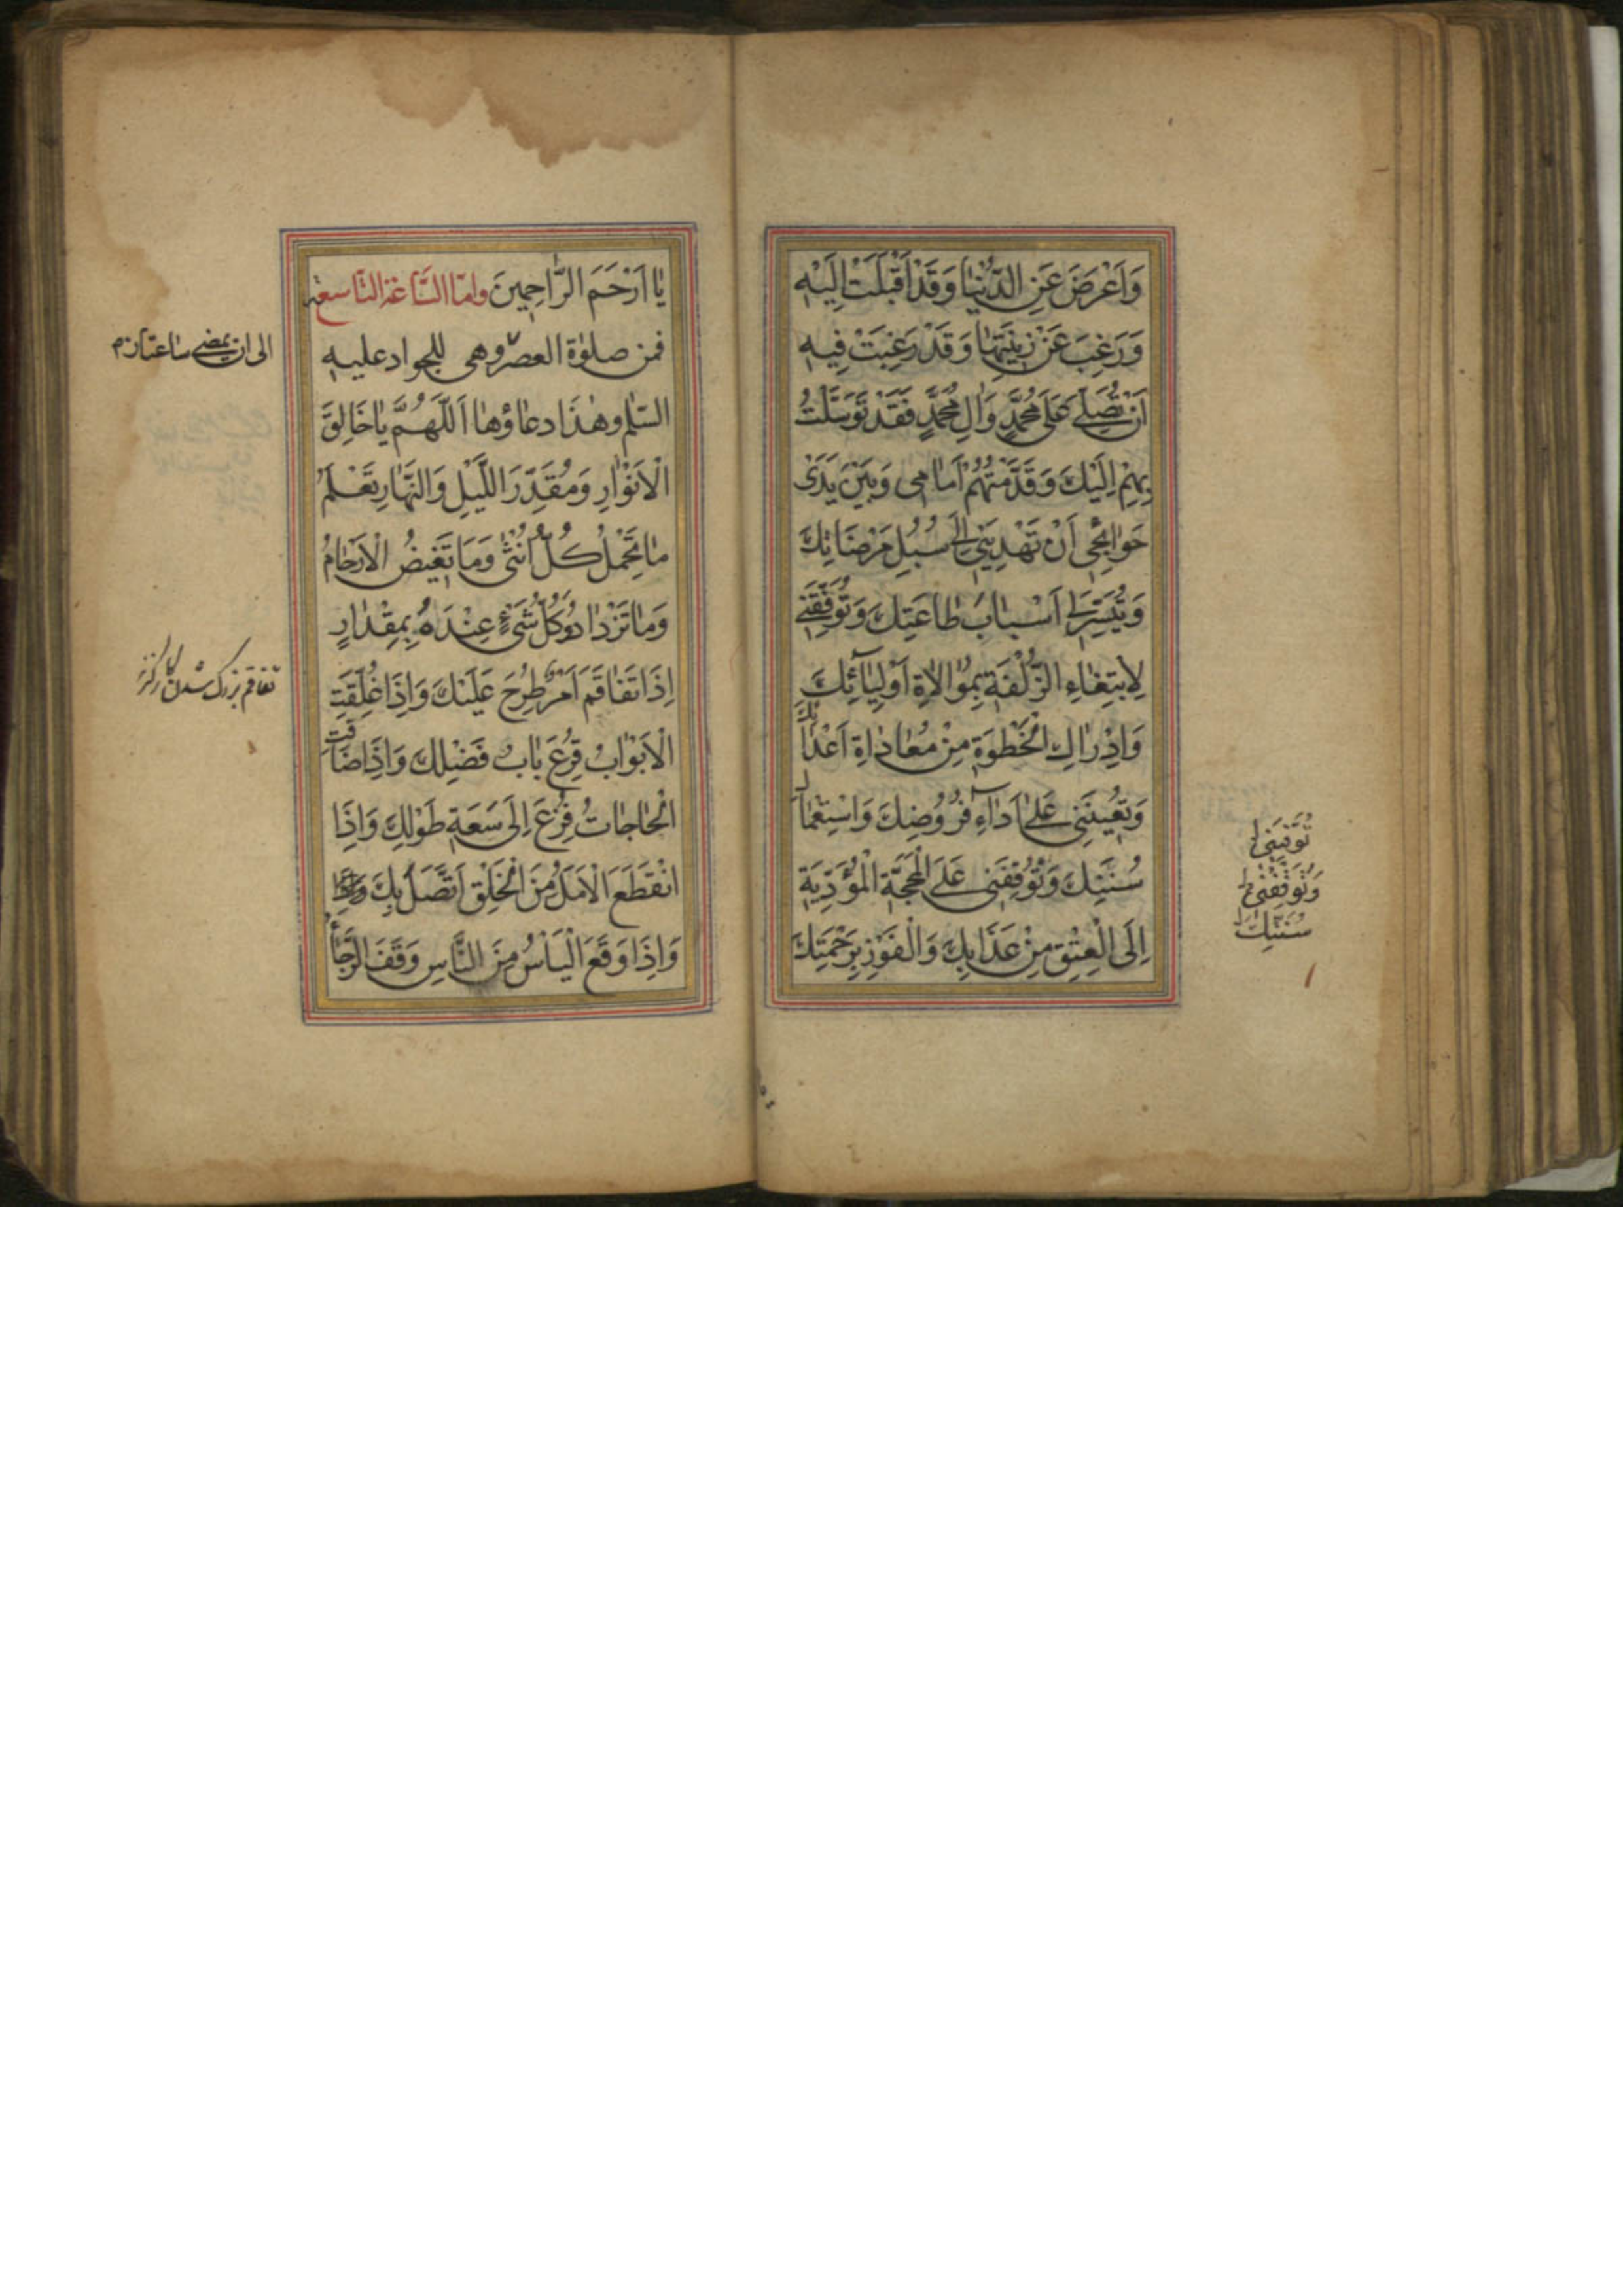 وَاَعْرَضَ عَنِ الدُّنْيٰا وَقَدْ اَقْبَلَتْ اِلَيْهِ
وَرَغِبَ عَنْ زِينَتِهٰا وَقَدْ رَغِبَتْ فِيهِ
اَنْ تُصَلِّيَ عَلٰى مُحَمَّدٍ وَاٰلِ مُحَمَّدٍ فَقَدْ تَوَسَّلْتُ
بِهِمْ اِلَيْكَ وَقَدَّمْتُهُمْ اَمٰامِي وَبَيْنَ يَدَيْ
حَوٰائِجِي اَنْ تَهْدِيَنِي اِلٰى سُبُلِ مَرْضَاتِكَ
وَتُيَسِّرَ لِي اَسْبٰابَ طٰاعَتِكَ وَتُوَفِّقَنِي
لِابْتِغٰاءِ الزُّلْفَةِ بِمُوٰالاٰةِ اَوْلِيٰائِكَ
وَاِدْرٰاكِ الْخُطْوَةِ مِنْ مُعٰادٰاةِ اَعْدٰائِكَ
وَتُعِينَنِي عَلٰى اَدٰاءِ فُرُوضِكَ وَاسْتِعْمٰالِ
سُنَّتِكَ وَتُوقِفَنِي عَلَى الْمَحَجَّةِ الْمُؤَدِّيَةِ
اِلَى الْعِتْقِ مِنْ عَذَابِكَ وَالْفَوْزِ بِرَحْمَتِكَ
وَتُوَفِّقَنِي
سُنَنِكَ
يٰا اَرْحَمَ الرّٰاحِمِينَ وامّا السّاعة التّاسعة
فمن صلوٰة العصر وهى للجواد عليه
السّلم وهٰذا دعاؤها اَللّٰهُمَّ يٰا خَالِقَ
الْاَنْوٰارِ وَمُقَدِّرَ اللَّيْلِ وَالنَّهٰارِ تَعْلَمُ
مٰا تَحْمِلُ كُلُّ اُنْثٰى وَمَا تَغِيضُ الْاَرْحٰامُ
وَمٰا تَزْدٰادُ وَكُلُّ شَيْءٍ عِنْدَهُ بِمِقْدٰارٍ
اِذَا تَفٰاقَمَ اَمْرٌ طُرِحَ عَلَيْكَ وَاِذَا غُلِّقَتِ
الْاَبْوٰابُ قُرِعَ بٰابُ فَضْلِكَ وَاِذَا ضَاقَتِ
الْحٰاجٰاتُ فُزِعَ اِلٰى سَعَةِ طَوْلِكَ وَاِذَا
انْقَطَعَ الْاَمَلُ مِنَ الْخَلْقِ اتَّصَلَ بِكَ
وَاِذَا وَقَعَ الْيَاْسُ مِنَ النَّاسِ وَقَفَ الرَّجٰاءُ
الى ان يمضى ساعتان
تفاقم بزرك شدن كار